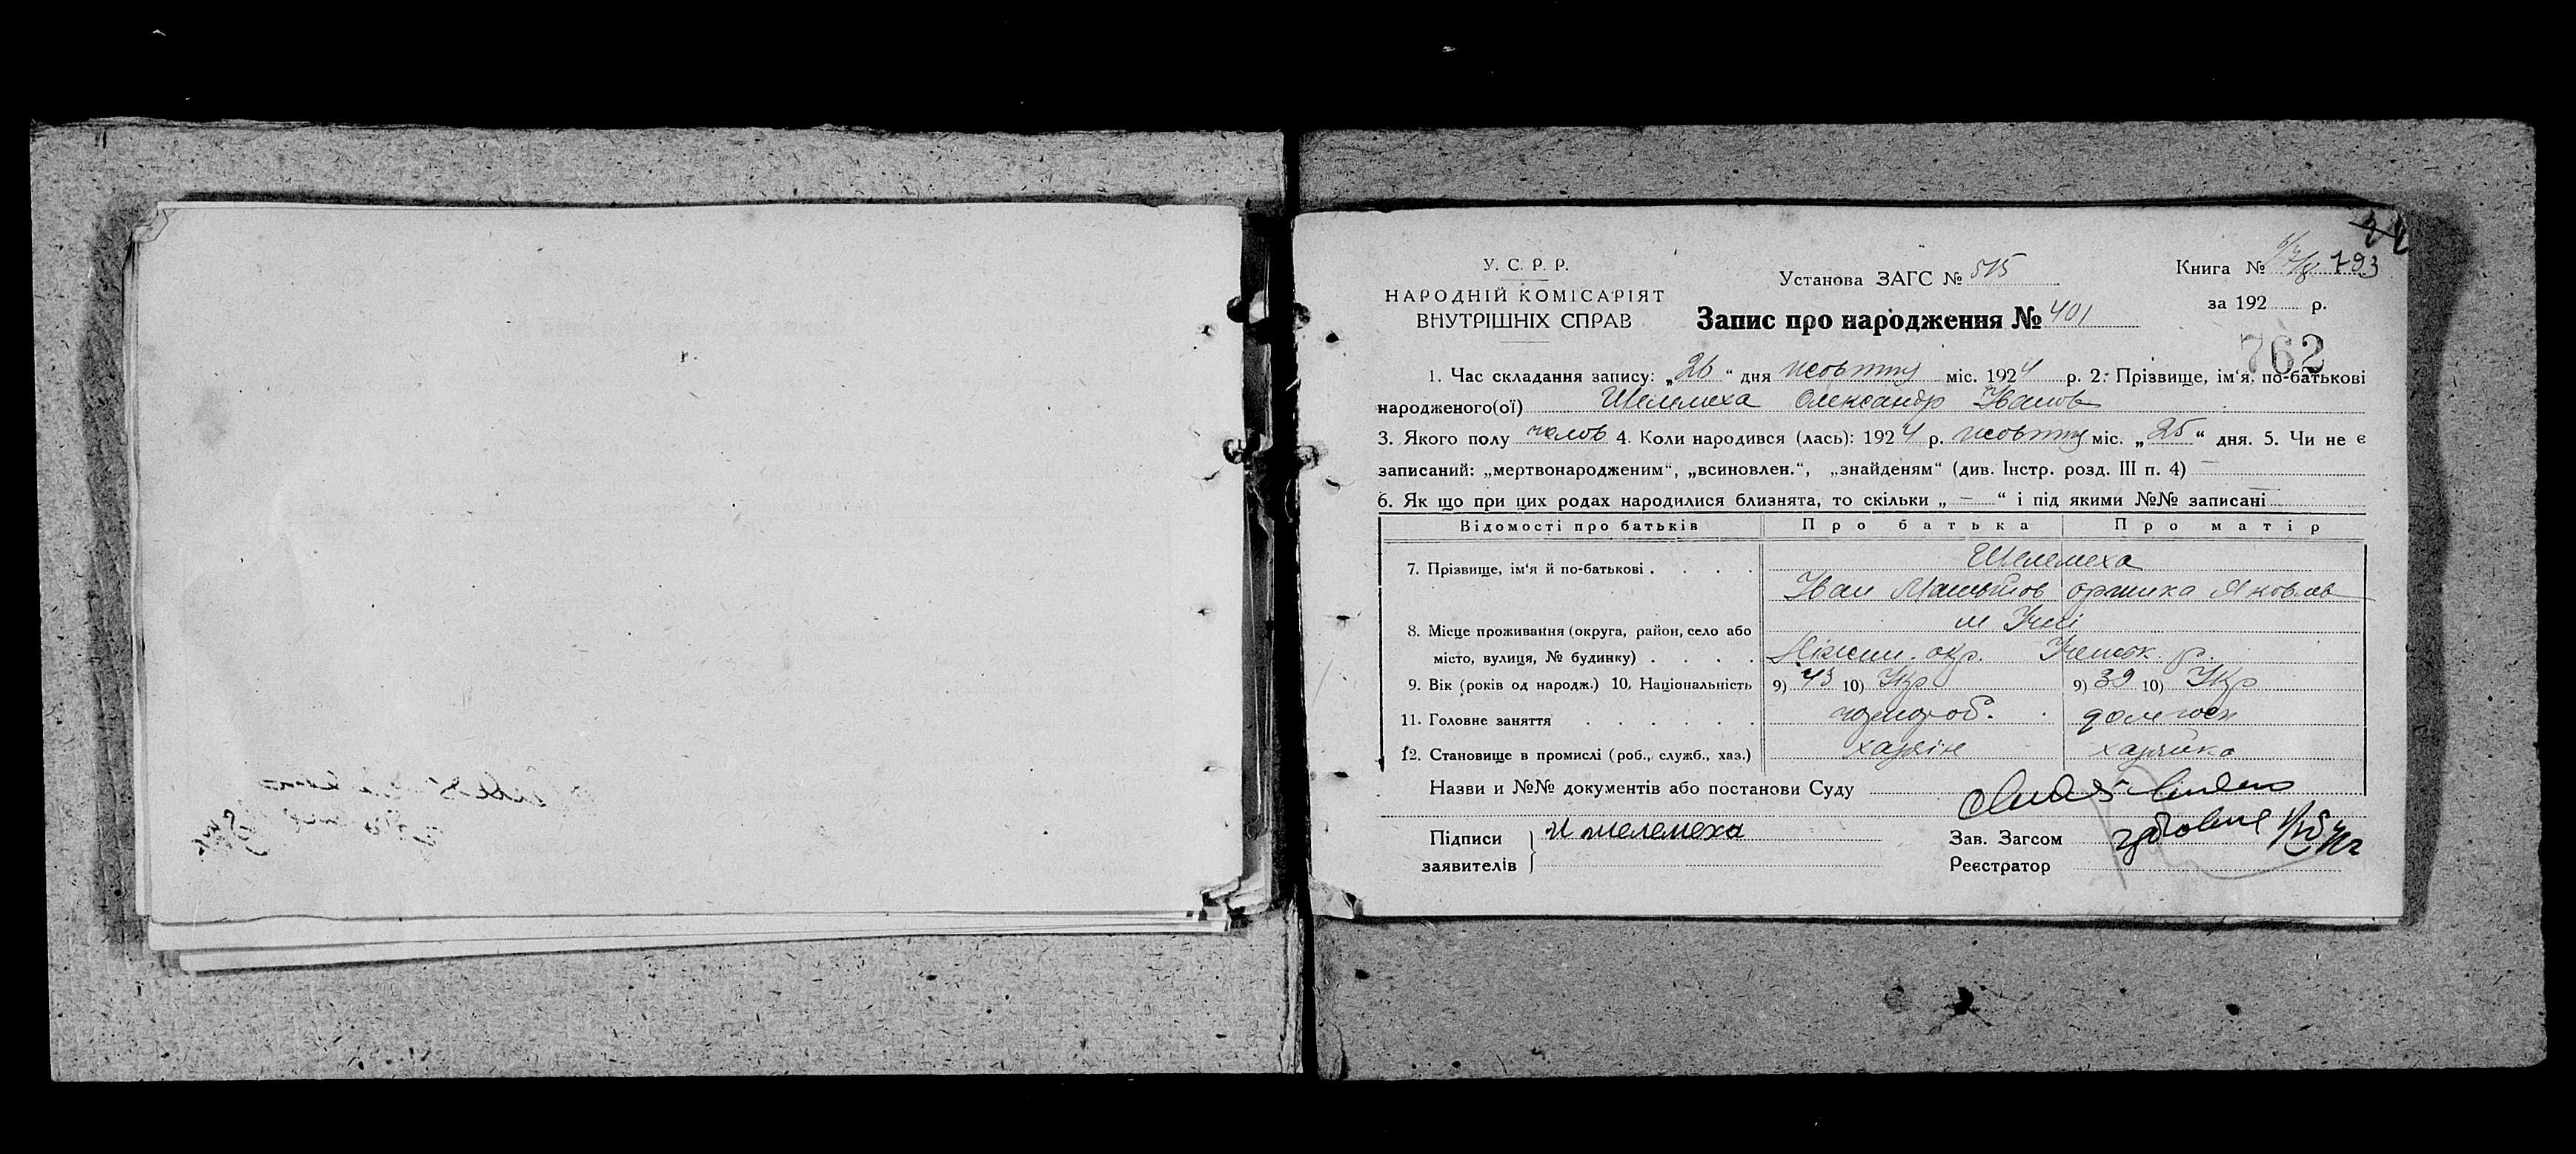 У. С. Р. Р.
НАРОДНІЙ КОМІСАРІЯТ
ВНУТРІШНІХ СПРАВ
Установа ЗАГС № 515
Книга № 193
за 192 р.
Запис про народження № 401
762
1. Час складання запису: „26“ дня жовтня міс. 1924 р. 2. Прізвище, ім‘я, по-батькові
народженого(ої) Шелемеха Олександр Іванов
3. Якого полу чолов 4. Коли народився (лась): 1924 р. жовтня міс. „25“ дня. 5. Чи не є
записаний: „мертвонародженим“, „всиновлен.“, „знайденям“ (див. Інстр. розд. III п. 4) —
6. Як що при цих родах народилися близнята, то скільки „ — “ і під якими №№ записані
Відомості про батьків Про батька Про матір
7. Прізвище, ім‘я й по-батькові . . . . Шелемеха
Іван Яковлів
8. Місце проживання (округа, район, село або м Ічні
місто, вулиця, № будинку) . . . . Ніжин. окр. Іченськ. р.
9. Вік (років од народж.) 10. Національність 9) 43 10) Укр 9) 39 10) Укр
11. Головне заняття . . . . . . домгосп
12. Становище в промислі (роб., служб., хаз.) хазяїн хазяйка
Назви и №№ документів або постанови Суду
Підписи И шелемеха Зав. Загсом
заявителів Реєстратор